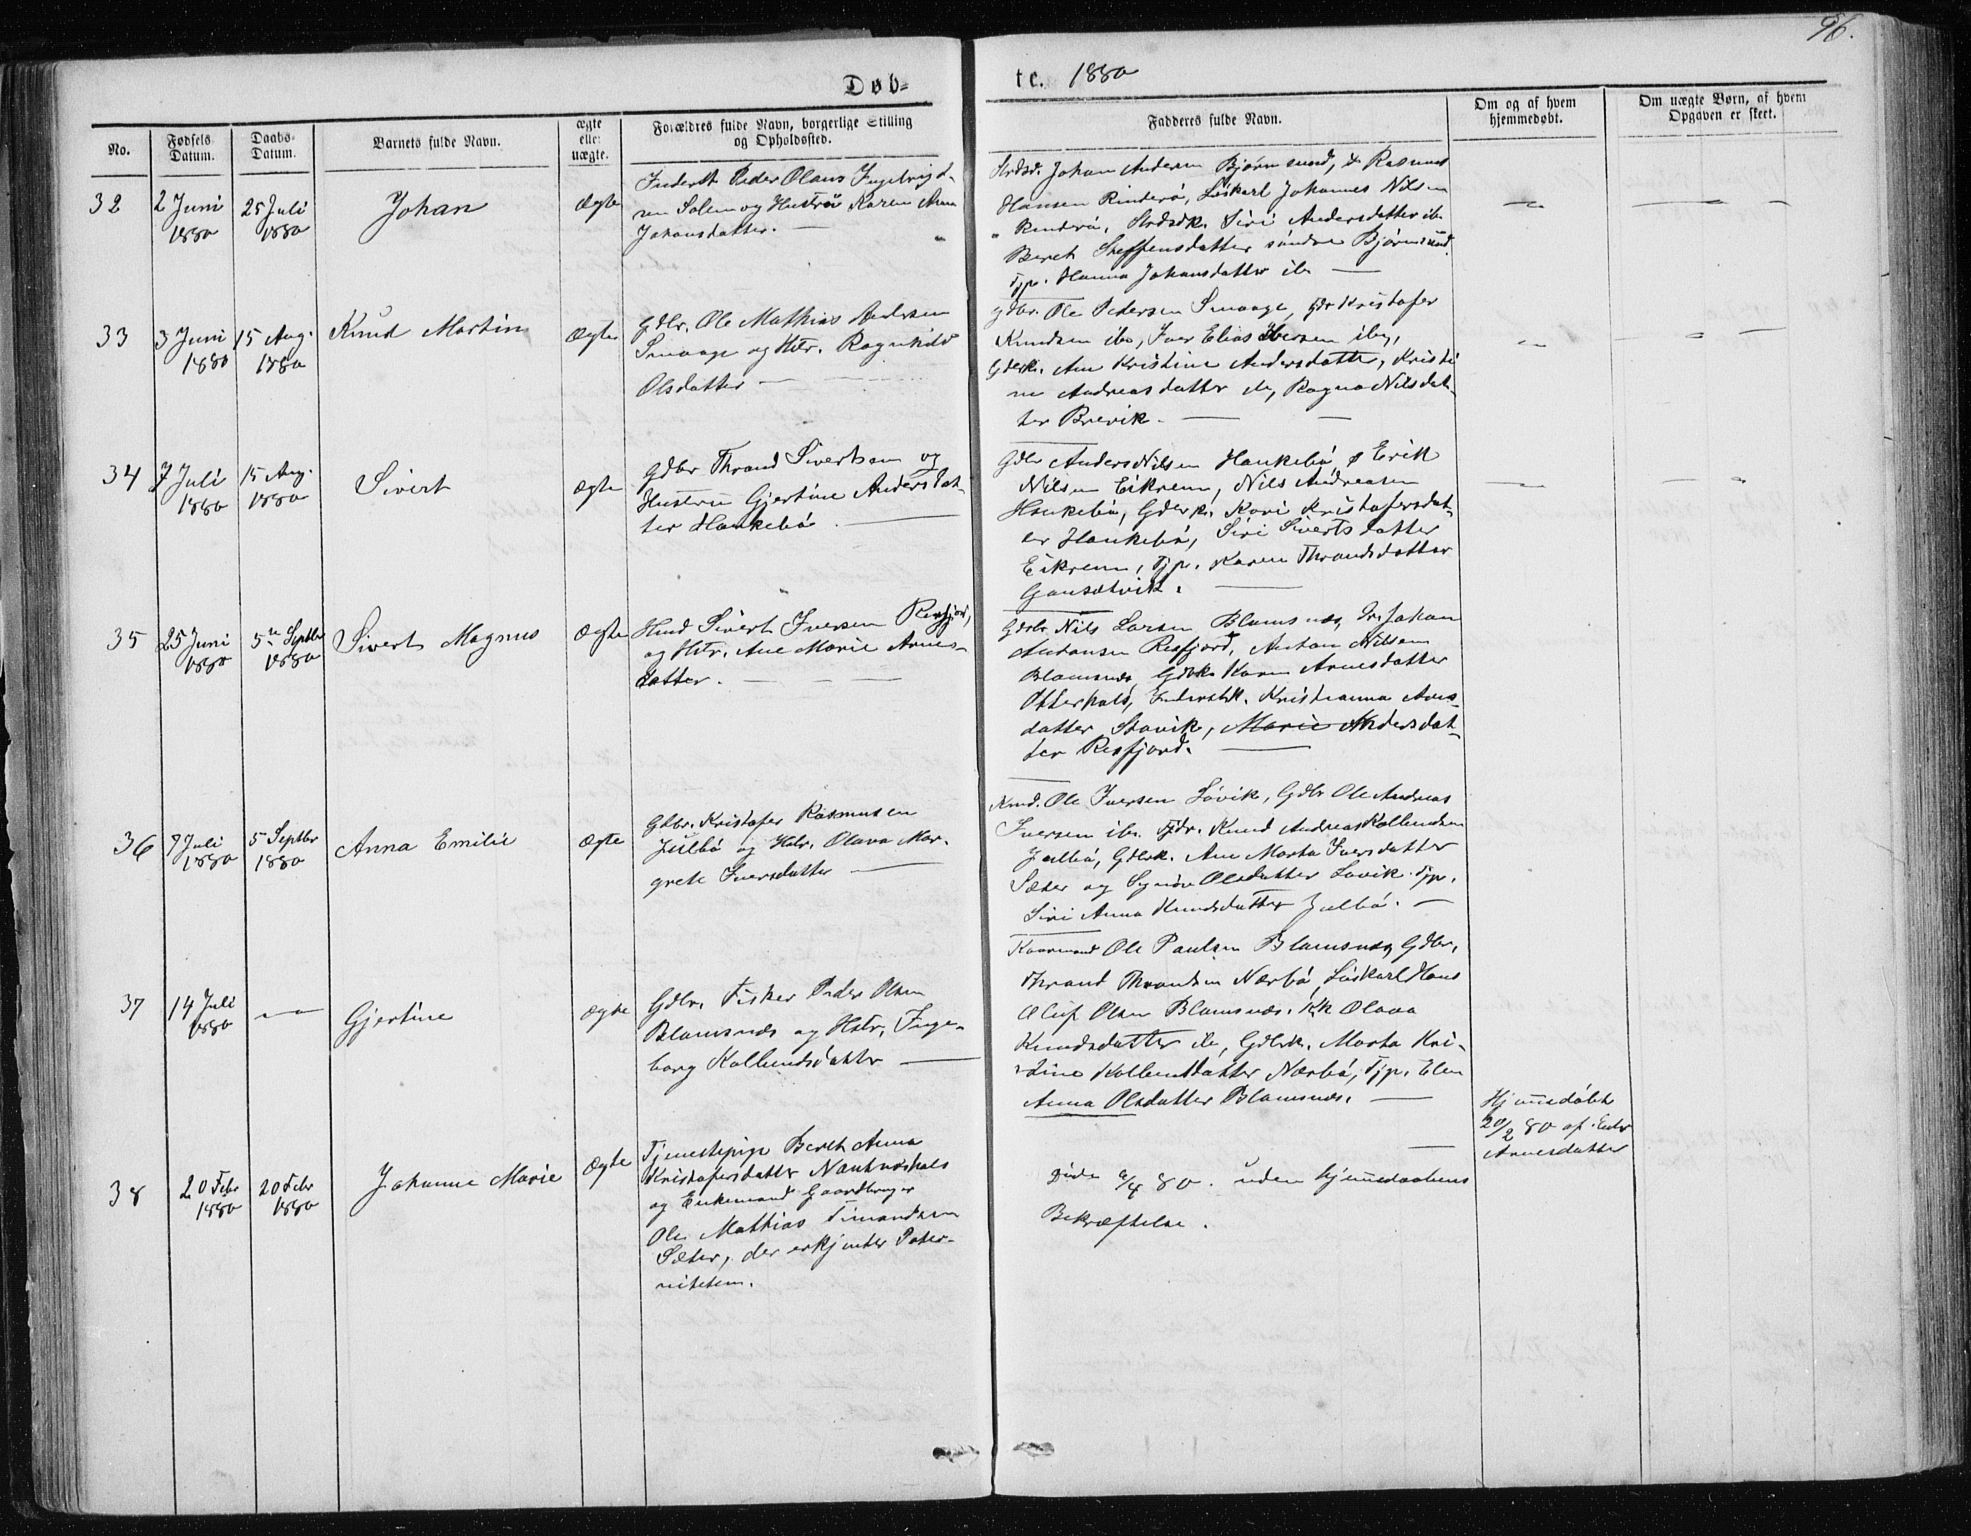 96.
Døb-
te. 1880
No.
Fødsels
Datum.
Daabs-
Datum.
Barnets fulde Navn.
ægte
eller
uægte.
Forældres fulde Navn, borgerlige Stilling
og Opholdssted.
Fadderes fulde Navn.
Om og af hvem
hjemmedøbt.
Om uægte Børn, af hvem
Opgaven er skeet.
32
2 Juni
1880
25 Juli
1880
Johan
Ægte
Inderst Peder Olaus Ingebrigt-
sen Solem og Hustru Karen Anna
Johansdatter. —
Johan Andersen Bjørnsund, Rasmus
Hansen Rinderø, Løskarl Johannes Nilsen
Rinderø, Siri Andersdatter ib
Beret Steffensdatter søndre Bjørnsund.
Tjp. Hanna Johansdatter ib —
33
3 Juni
1880
15 Aug.
1880
Knud Martin
Ægte
Gdbr. Ole Mathias Andersen
Smaage og Hstr. Ragnhild
Olsdatter —
Gdbr. Ole Pedersen Smaage, Kristofer
Knudsen ib, Iver Elias Iversen ib,
Gderk. Ane Kristine Andersdatter, Kristi
ne Andreasdatter ib, Ragna Nilsdat-
ter Brevik. —
34
7 Juli
1880
15 Aug.
1880
Sivert
Ægte
Gdbr Thrond Sivertsen og
Hustru Gjertine Andersdat-
ter Haukebø. —
Gdbr Anders Nilsen Haukebø Erik
Nilsen Eikrem, Nils Andreasen
Haukebø, Gderk. Kari Kristofersdat-
ter Haukebø, Siri Sivertsdatter
Eikrem, Tjp. Karen Throndsdatter
Gansetvik. —
35
25 Juni
1880
5te Septbr
1880
Sivert Magnus
Ægte
Hmd Sivert Iversen Resfjord,
og Hstr. Ane Marie Arnes-
datter. —
Gdbr Nils Larsen Blamsnæs, Johan
Antonsen Resfjord, Anton Nilsen
Blamsnæs, Gdbk. Karen Arnesdatter
Otterhals, Inderstk. Kristianna Arnes-
datter Stavik, Marie Andersdat-
ter Resfjord. —
36
7 Juli
1880
5 Septbr
1880
Anna Emilie
Ægte
Gdbr. Kristofer Rasmusen
Julbø og Hstr. Olava Mar-
grete Iversdatter —
Kmd. Ole Iversen Løvik, Gdbr Ole Andreas
Iversen ib. Knud Andreas Kollundsen
Julbø, Gdbrk. Ane Marta Iversdatter
Sæter og Synøv Olsdatter Løvik. Tjp.
Siri Anna Knudsdatter Julbø. —
37
14 Juli
1880
— " —
Gjertine
Ægte
Gdbr. Fisker Peder Olsen
Blamsnæs og Hstr. Inge-
borg Kollundsdatter —
Kaarmand Ole Paulsen Blamsnæs, Gdbr.
Thrond Throndsen Nærbø, Løskarl Hans
Oluf Olsen Blamsnæs. KK Olava
Knudsdatter ib, Gdbrk. Marta Kri-
stine Kollundsdatter Nærbø, Tjp. Elen
Anna Olsdatter Blamsnæs. —
38
20 Febr
1880
20 Febr
1880
Johanne Marie
Ægte
Tjenestepige Beret Anna
Kristofersdatter
og Enkemand Gaardbruger
Ole Mathias Timandsen
Sæter, der erkjender Pater-
niteten.
døde 9/4 80. uden hjemmedaabens
Bekræftelse.
Hjemmedøbt
20/2 80 af
Arnesdatter